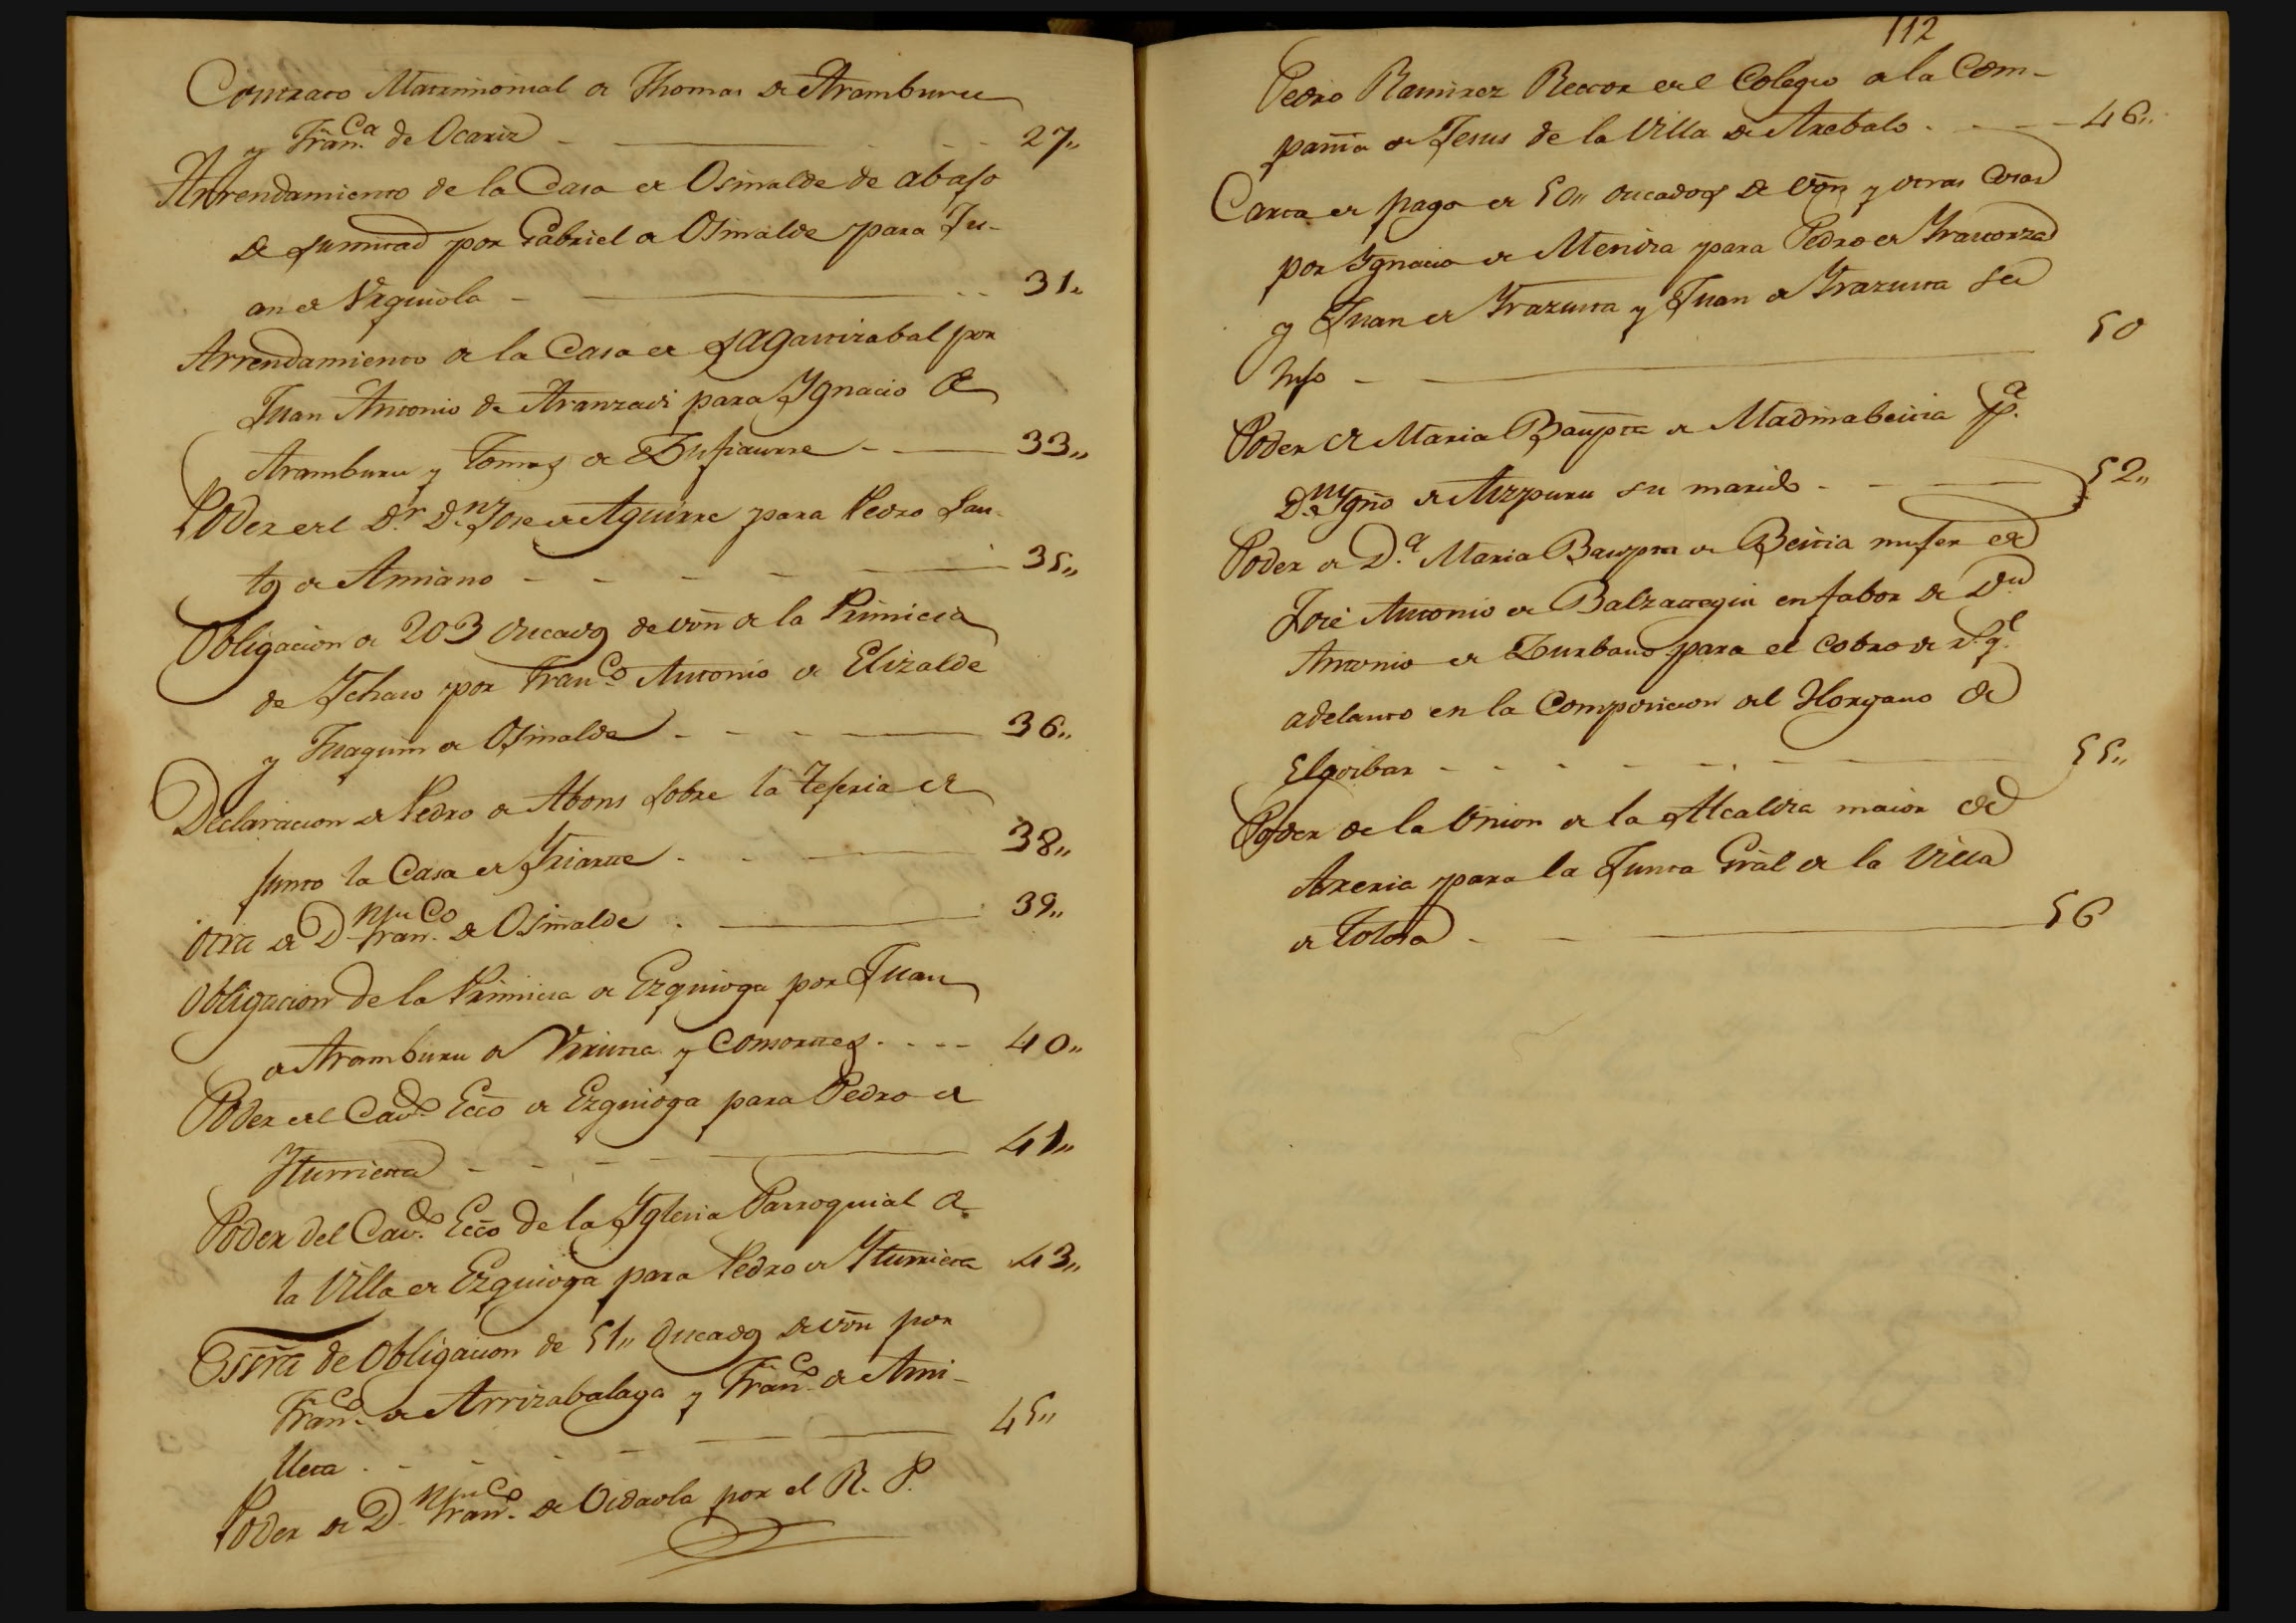 Contrato Matrimonial de Thomas de Aramburu
y Fran.ca de Ocariz - 27,,
Arrendamiento de la Casa de Osinalde de abajo
de su mitad por Gabriel de Osinalde para Ju-
an de Urquiola - 31,,
Arrendamiento de la Casa de Sagastizabal por
Juan Antonio de Aranzadi para Ygnacio de
Aramburu y Tomas de 33,,
Poder del D.r D.n Jose de Aguirre para Pedro San-
tos de Amiano - 35,,
Obligacion de 203 ducados de von de la Primicia
de Ychaso por Fran.co Antonio de Elizalde
y Juaquin de Osinalde - 36,,
Declaracion de Pedro de Albons sobre la Tejeria de
junto la Casa de Yriarte - 38,,
otra de D.n Fran.co de Osinalde - 39,,
Obligacion de la Primicia de Ezquioga por Juan
de Aramburu de Viriuta y Consortes - 40,,
Poder del Cav.do Ecco de Ezquioga para Pedro de
Yturrieta - 41,,
Poder del Cav.do Ecco de la Yglesia Parroquial de
la Villa de Ezquioga para Pedro de Yturrieta 43,,
Essra de Obligacion de 51,, ducados de von por
Fran.co de Arrizabalaga y Fran.co de Ami-
lleta - 45,,
Poder de D.n Fran.co de Vidaola por el R. P.
112
Pedro Ramirez Rector del Colegio de la Com-
pania de Jesus de la Villa de Arebalo - 46,,
Carta de pago de 50,, ducados de von y otras Cosas
por Ygnacio de Mendia para Pedro de Yraeorza
y Juan de Yrazusta y Juan de Yrazusta su
hijo - 50
Poder de Maria Baupta de Madinabeitia p.a
D.n Ygno de Aizpuru su marido - 52,,
Poder de D.a Maria Baupta de Beitia mujer de
José Antonio de Balzategui en fabor de D.n
Antonio de Zurbano para el cobro de q.e
adelanto en la Composicion del Horgano de
Elgoibar - 55,,
Poder de la Union de la Alcaldia maior de
Areria para la Junta Gral de la Villa
de Tolosa - 56